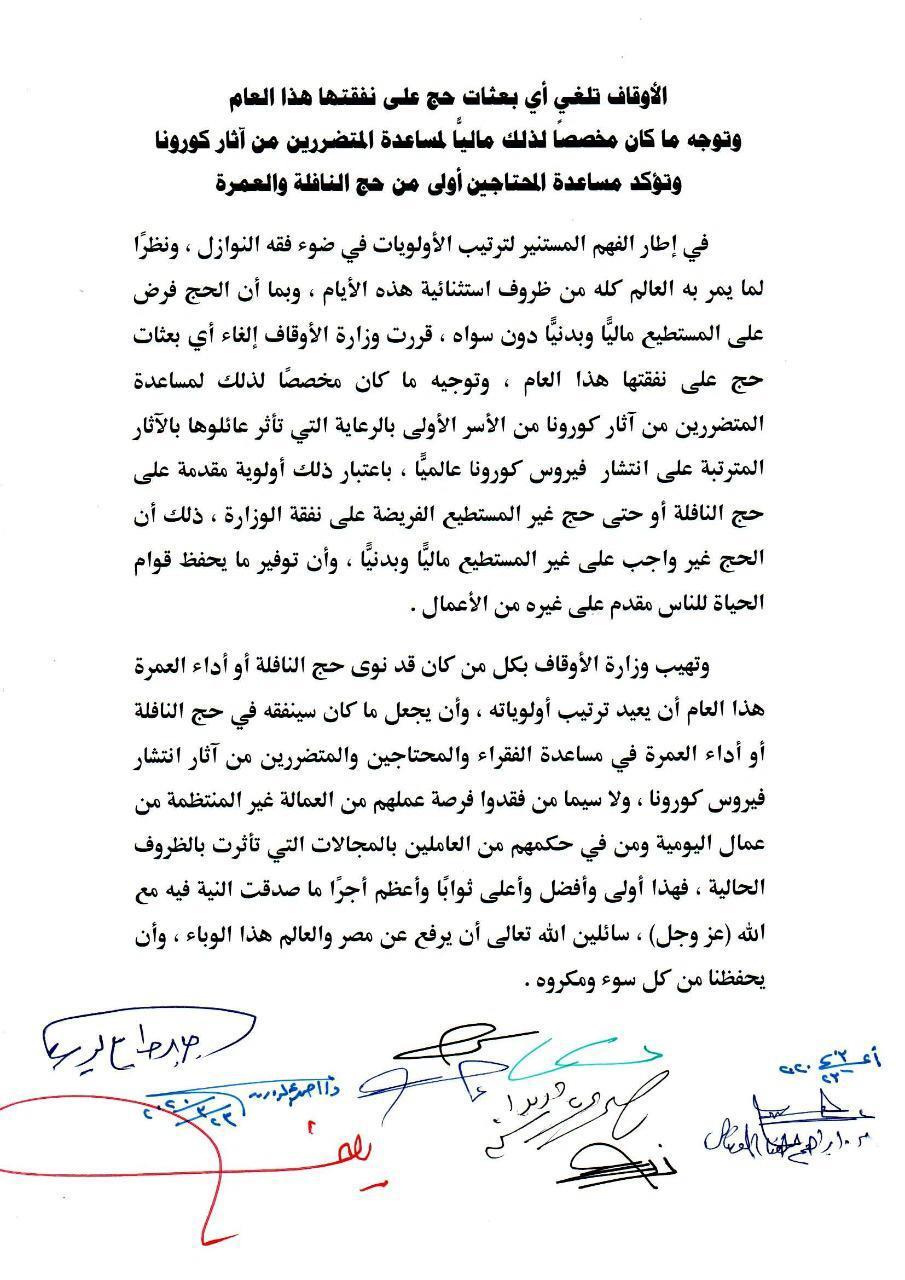 الأوقاف تلغي أي بعثات حج على نفقتها هذا العام
وتوجه ما كان مخصصاً لذلك مالياً لمساعدة المتضررين من آثار كورونا
وتؤكد مساعدة المحتاجين أولى من حج النافلة والعمرة
في إطار الفهم المستنير لترتيب الأولويات في ضوء فقه النوازل ، ونظرًا
لما يمر به العالم كله من ظروف استثنائية هذه الأيام ، وبما أن الحج فرض
على المستطيع ماليًّا وبدنيًّا دون سواه ، قررت وزارة الأوقاف إلغاء أي بعثات
حج على نفقتها هذا العام ، وتوجيه ما كان مخصصًا لذلك لمساعدة
المتضررين من آثار كورونا من الأسر الأولى بالرعاية التي تأثر عائلوها بالآثار
المترتبة على انتشار فيروس كورونا عالميًّا ، باعتبار ذلك أولوية مقدمة على
حج النافلة أو حتى حج غير المستطيع الفريضة على نفقة الوزارة ، ذلك أن
الحج غير واجب على غير المستطيع ماليًّا وبدنيًّا ، وأن توفير ما يحفظ قوام
الحياة للناس مقدم على غيره من الأعمال .
وتهيب وزارة الأوقاف بكل من كان قد نوى حج النافلة أو أداء العمرة
هذا العام أن يعيد ترتيب أولوياته ، وأن يجعل ما كان سينفقه في حج النافلة
أو أداء العمرة في مساعدة الفقراء والمحتاجين والمتضررين من آثار انتشار
فيروس كورونا ، ولا سيما من فقدوا فرصة عملهم من العمالة غير المنتظمة من
عمال اليومية ومن في حكمهم من العاملين بالمجالات التي تأثرت بالظروف
الحالية ، فهذا أولى وأفضل وأعلى ثوابًا وأعظم أجرًا ما صدقت النية فيه مع
الله (عز وجل) ، سائلين الله تعالى أن يرفع عن مصر والعالم هذا الوباء ، وأن
يحفظنا من كل سوء ومكروه .
٢٠٢٠/٣/٢٣